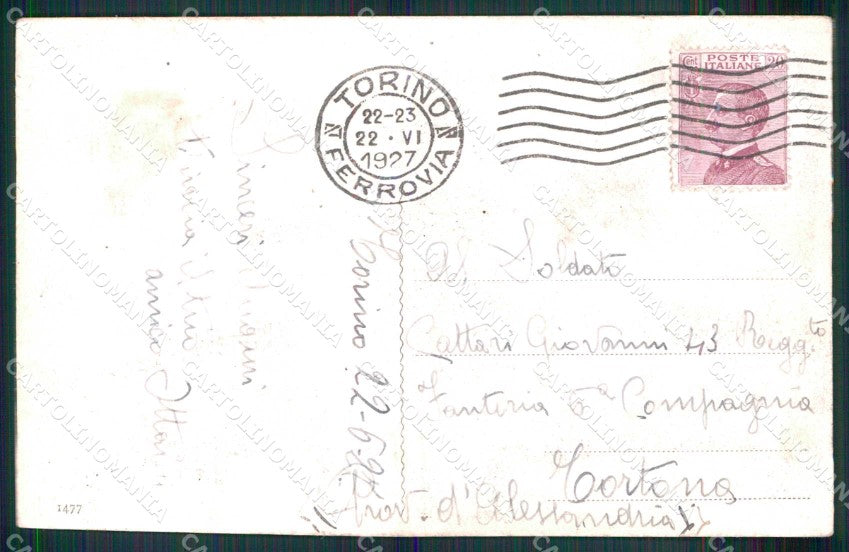 TORINO
22-23
22 · VI
1927
FERROVIA
POSTE
ITALIANE
Cent 20
Al Soldato
Cattari Giovanni 43 Regg.to
Fanteria 5a Compagnia
Tortona
Prov. d'Alessandria
Torino 22-6-927
Sinceri Auguri
il tuo
amico
1477
CARTOLINOMANIA